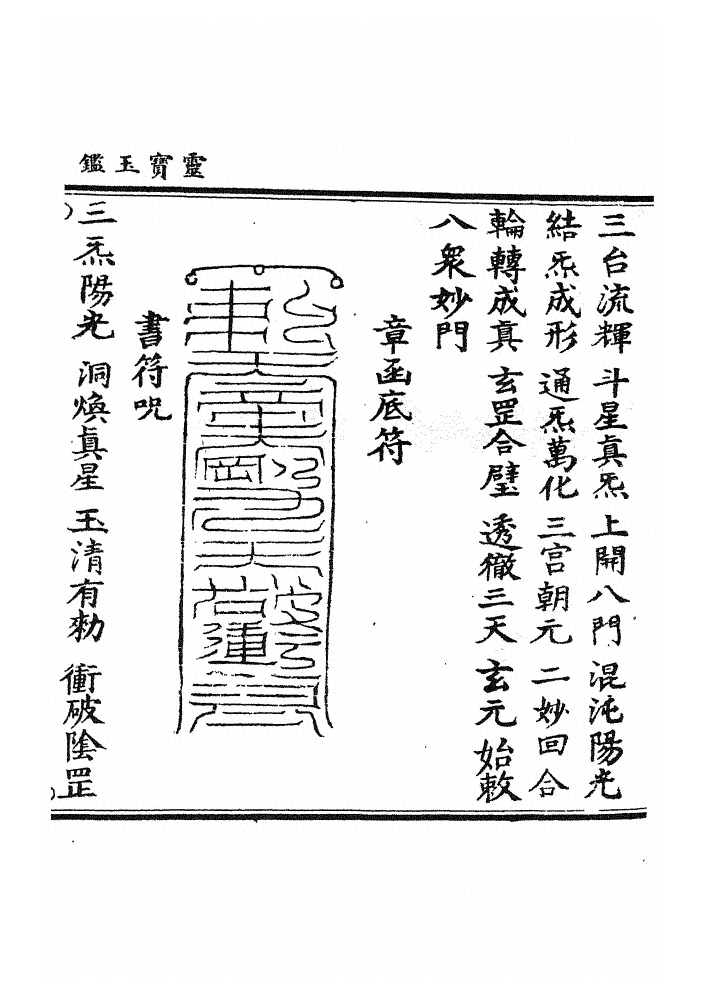 靈寶玉鑑
三台流輝 斗星眞炁 上開八門 混沌陽光
結炁成形 通炁萬化 三宮朝元 二妙回合
輪轉成真 玄罡合璧 透徹三天 玄元始敕
八衆妙門
章函底符
書符呪
三炁陽光 洞煥眞星 玉清有勑 衝破陰罡